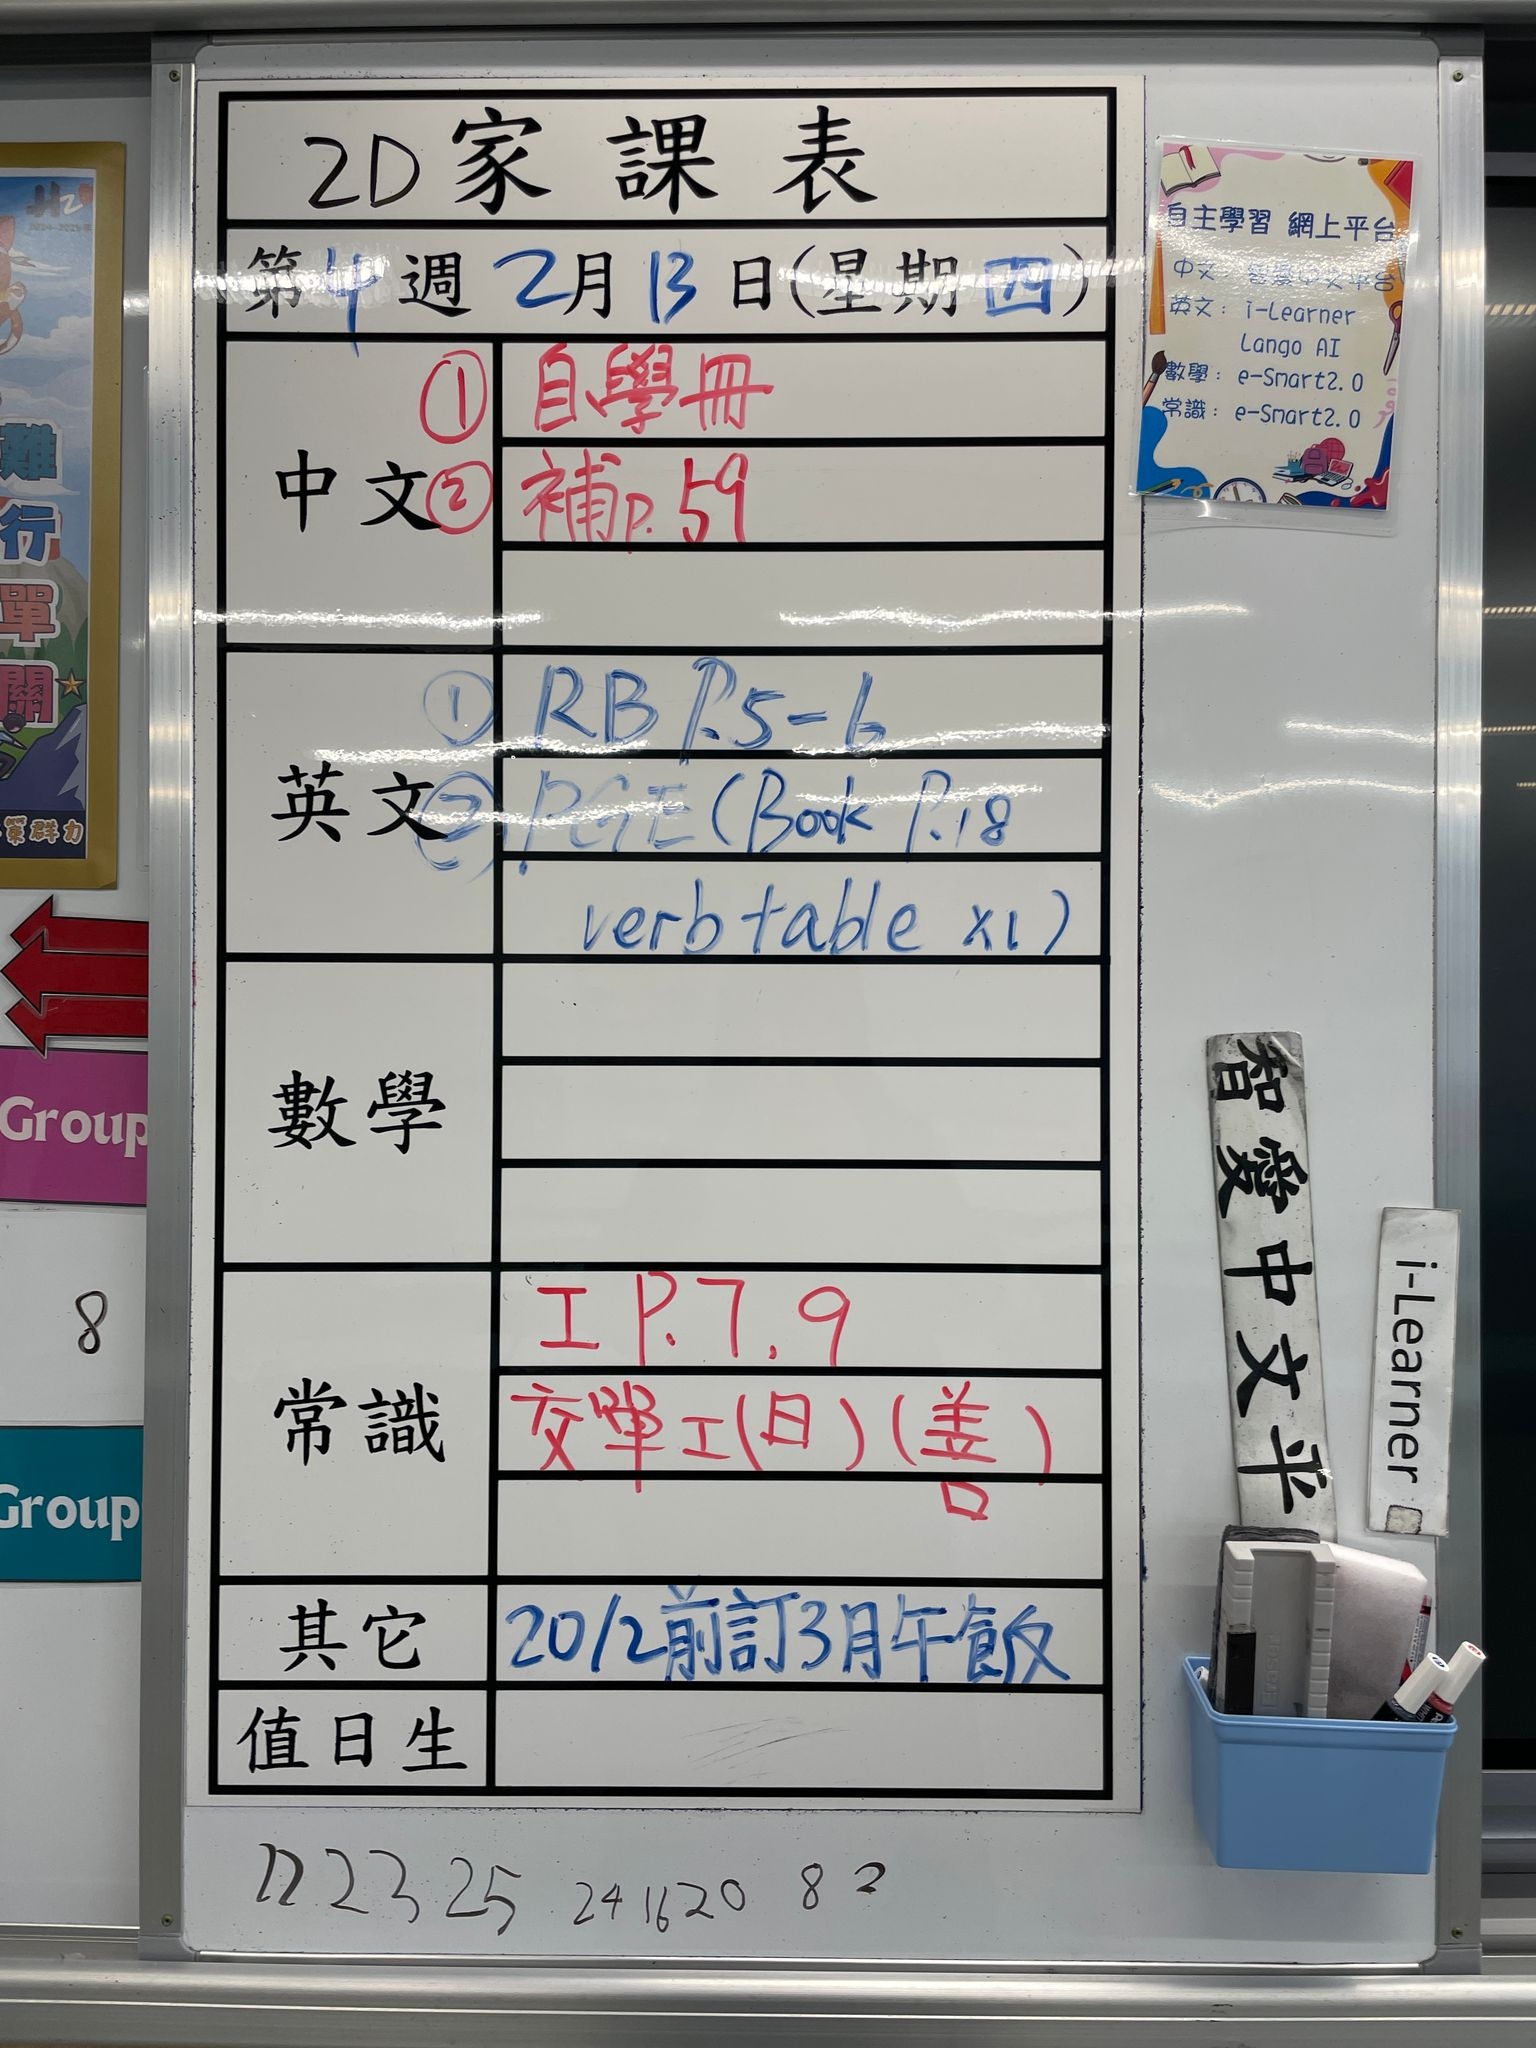 2D 家課表
第4週 2月13日(星期四)
中文
① 自學冊
② 補p.59
英文
① RB P.5-6
② PGE (Book P.18
verb table x1)
數學
常識
工 P.7, 9
交單工(日)(善)
其它
20/2前訂3月午飯
值日生
23 25 24 16 20 8 2
自主學習 網上平台
中文: 智愛中文平台
英文: i-Learner
Lango AI
數學: e-Smart2.0
常識: e-Smart2.0
智愛中文平
i-Learner
難行單關
策群力
Group
8
Group